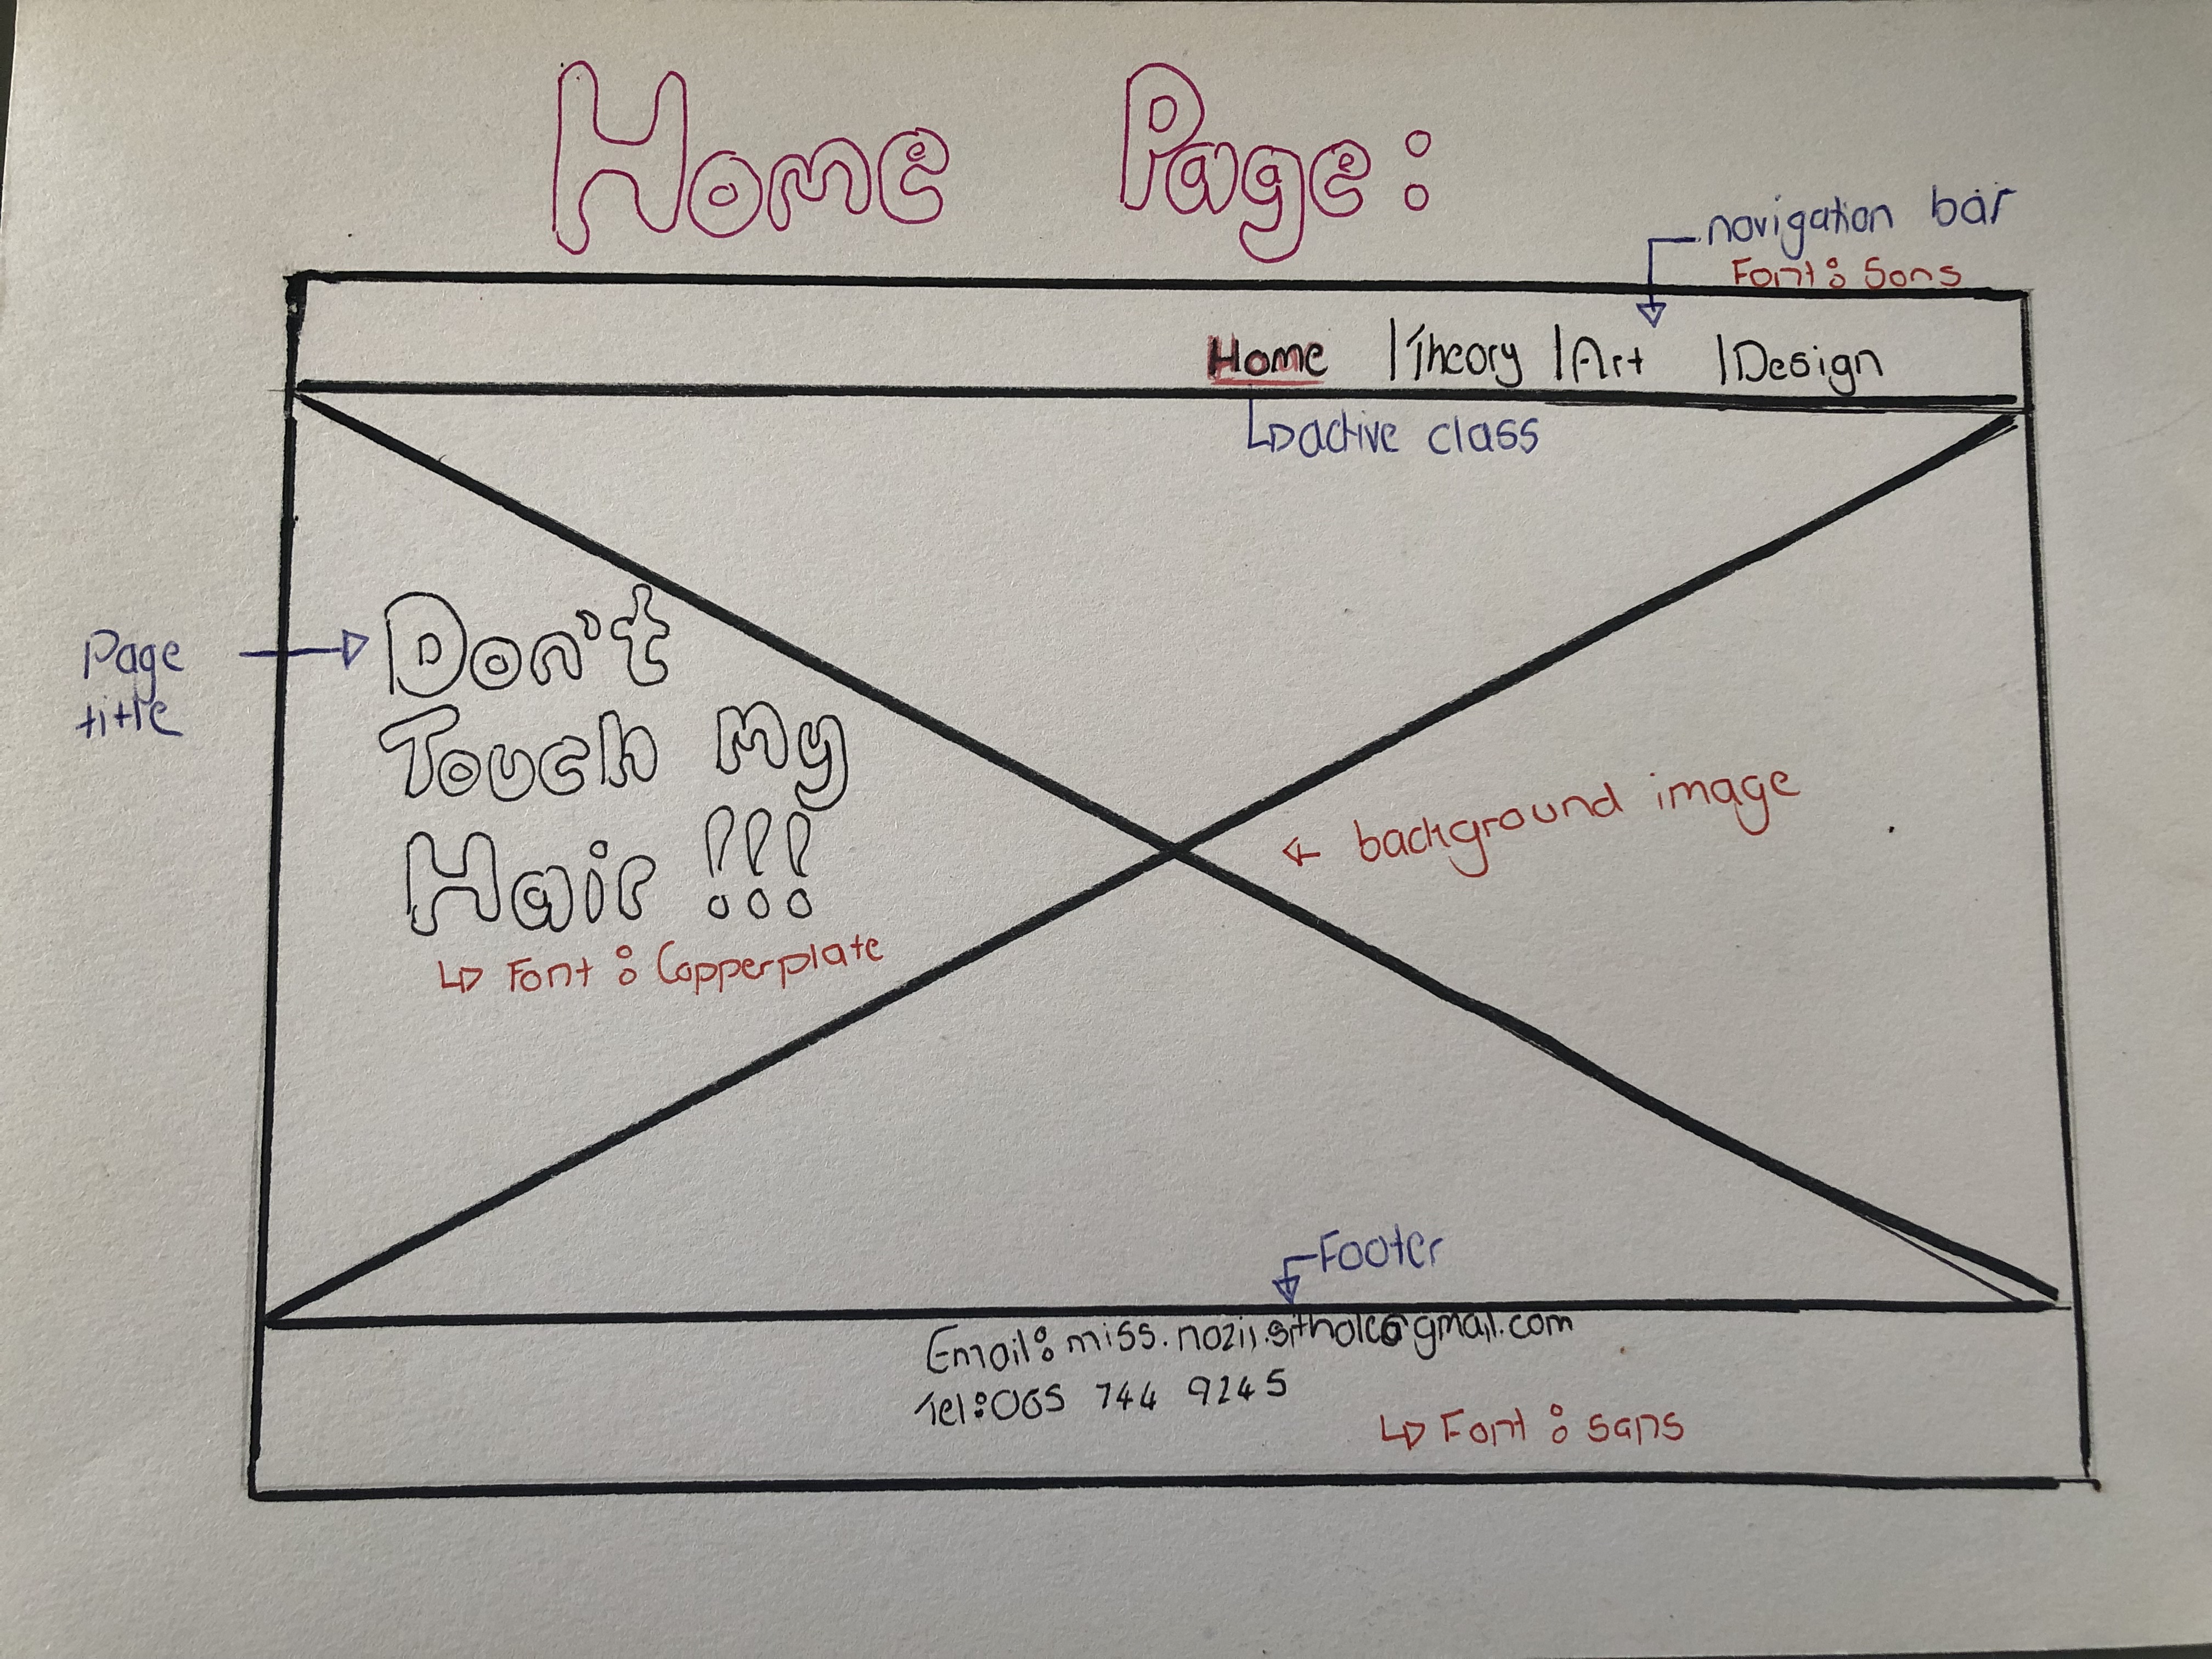 Home Page:
navigation bar
Font: Sans
Home | Theory | Art | Design
active class
Page
title
Don't
Touch My
Hair !!!
Font : Copperplate
background image
Footer
Email: miss.nozii.sithole@gmail.com
Tel: 065 744 9245
Font : sans